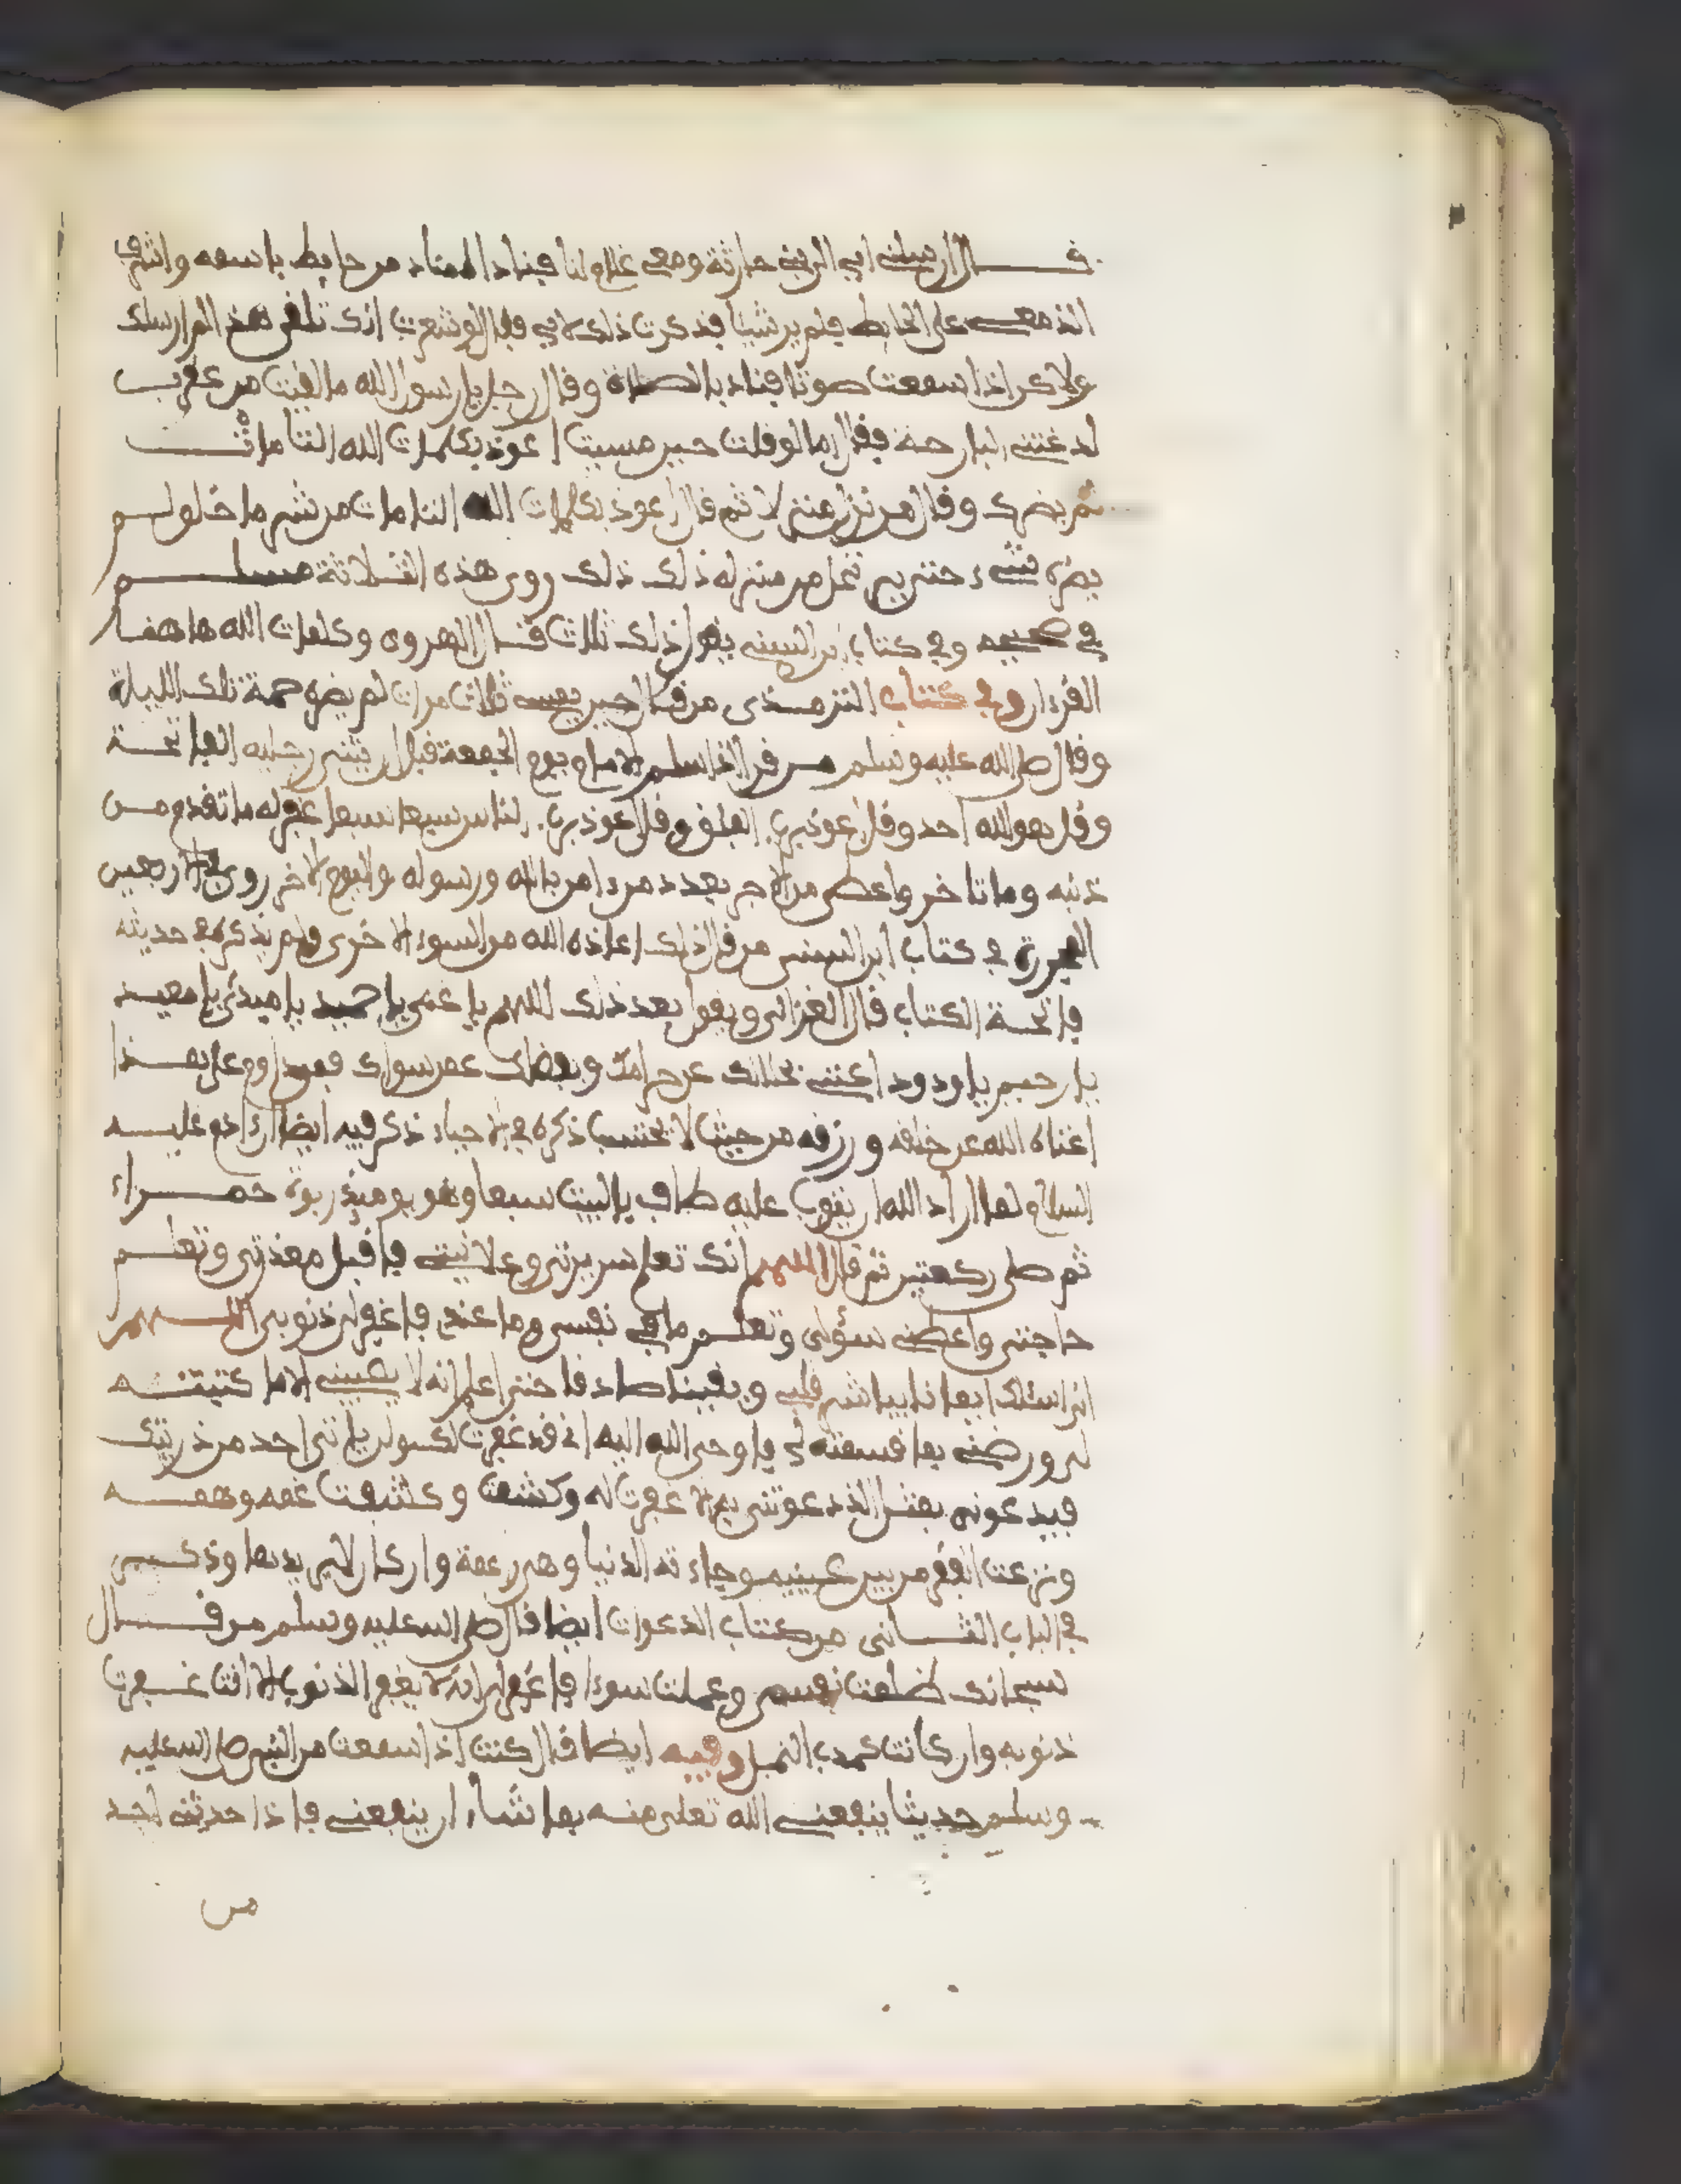 قال ارسلني ابي الى بني حارثة ومعي غلام لنا فناداه مناد من حايط باسمه واشرف
الذي معي على الحايط فلم ير شيئا فذكرت ذلك لابي فقال لو شعرت انك تلقى هذا لم ارسلك
ولاكن اذا سمعت صوتا فناد بالصلاة وقال رجل يا رسول الله ما لقيت من عقرب
لدغتني البارحة فقال اما لو قلت حين مسيت اعوذ بكلمات الله التامات
لم يضرك وقال من نزل منزلا ثم قال اعوذ بكلمات الله التامات من شر ما خلق لم
يضره شيء حتى يرتحل من منزله ذلك ذلك روى هذه الثلاثة مسلم
في صحيحه وفي كتاب ابن السني يقول ذلك ثلاث قال الهروي وكلمات الله هاهنا
القرءان وفي كتاب الترمذي من قال حين يمسي ثلاث مرات لم يضره حمة تلك الليلة
وقال صلى الله عليه وسلم من قرا اذا سلم الامام يوم الجمعة قبل ان يثني رجليه الفاتحة
وقل هو الله احد وقل اعوذ برب الفلق وقل اعوذ برب الناس سبعا سبعا غفر له ما تقدم من
ذنبه وما تاخر واعطى من الاجر بعدد من ءامن بالله ورسوله واليوم الاخر روي في الاربعين
في كتاب ابن السني من قال ذلك اعاذه الله من السوء الاخرى ولم يذكر في حديثه
فاتحة الكتاب قال الغزالي ويقول بعد ذلك اللهم يا غني يا حميد يا مبدئ يا معيد
يا رحيم يا ودود اغنني بحلالك عن حرامك وبفضلك عمن سواك فمن داوم على هذا
اغناه الله عن خلقه ورزقه من حيث لا يحتسب ذكره في الاحياء ذكر فيه ايضا ان ءادم عليه
السلام لما اراد الله ان يتوب عليه طاف بالبيت سبعا وهو يوميذ ربوة حمراء
ثم صلى ركعتين ثم قال اللهم انك تعلم سريرتي وعلانيتي فاقبل معذرتي وتعلم
حاجتي واعطني سؤلي وتعلم ما في نفسي وما عندي فاغفر لي ذنوبي اللهم
اني اسئلك ايمانا يباشر قلبي ويقينا صادقا حتى اعلم انه لا يصيبني الا ما كتبته
لي ورضني بما قسمته لي فاوحى الله اليه اني قد غفرت لك ولن ياتي احد من ذريتك
فيدعوني بمثل الذي دعوتني به الا غفرت له وكشفت وكشفت غمه وهمه
ونزعت الفقر من بين عينيه وجاءته الدنيا وهي راغمة وان كان لا يريدها وذكر
في الباب الثاني من كتاب الدعوات ايضا قال صلى الله عليه وسلم من قال
سبحانك ظلمت نفسي وعملت سوءا فاغفر لي انه لا يغفر الذنوب الا انت غفرت
ذنوبه وان كانت كمدب النمل وفيه ايضا قال كنت اذا سمعت من النبي صلى الله عليه
وسلم حديثا ينفعني الله تعلى منه بما شاء ان ينفعني فاذا حدثني احد
من